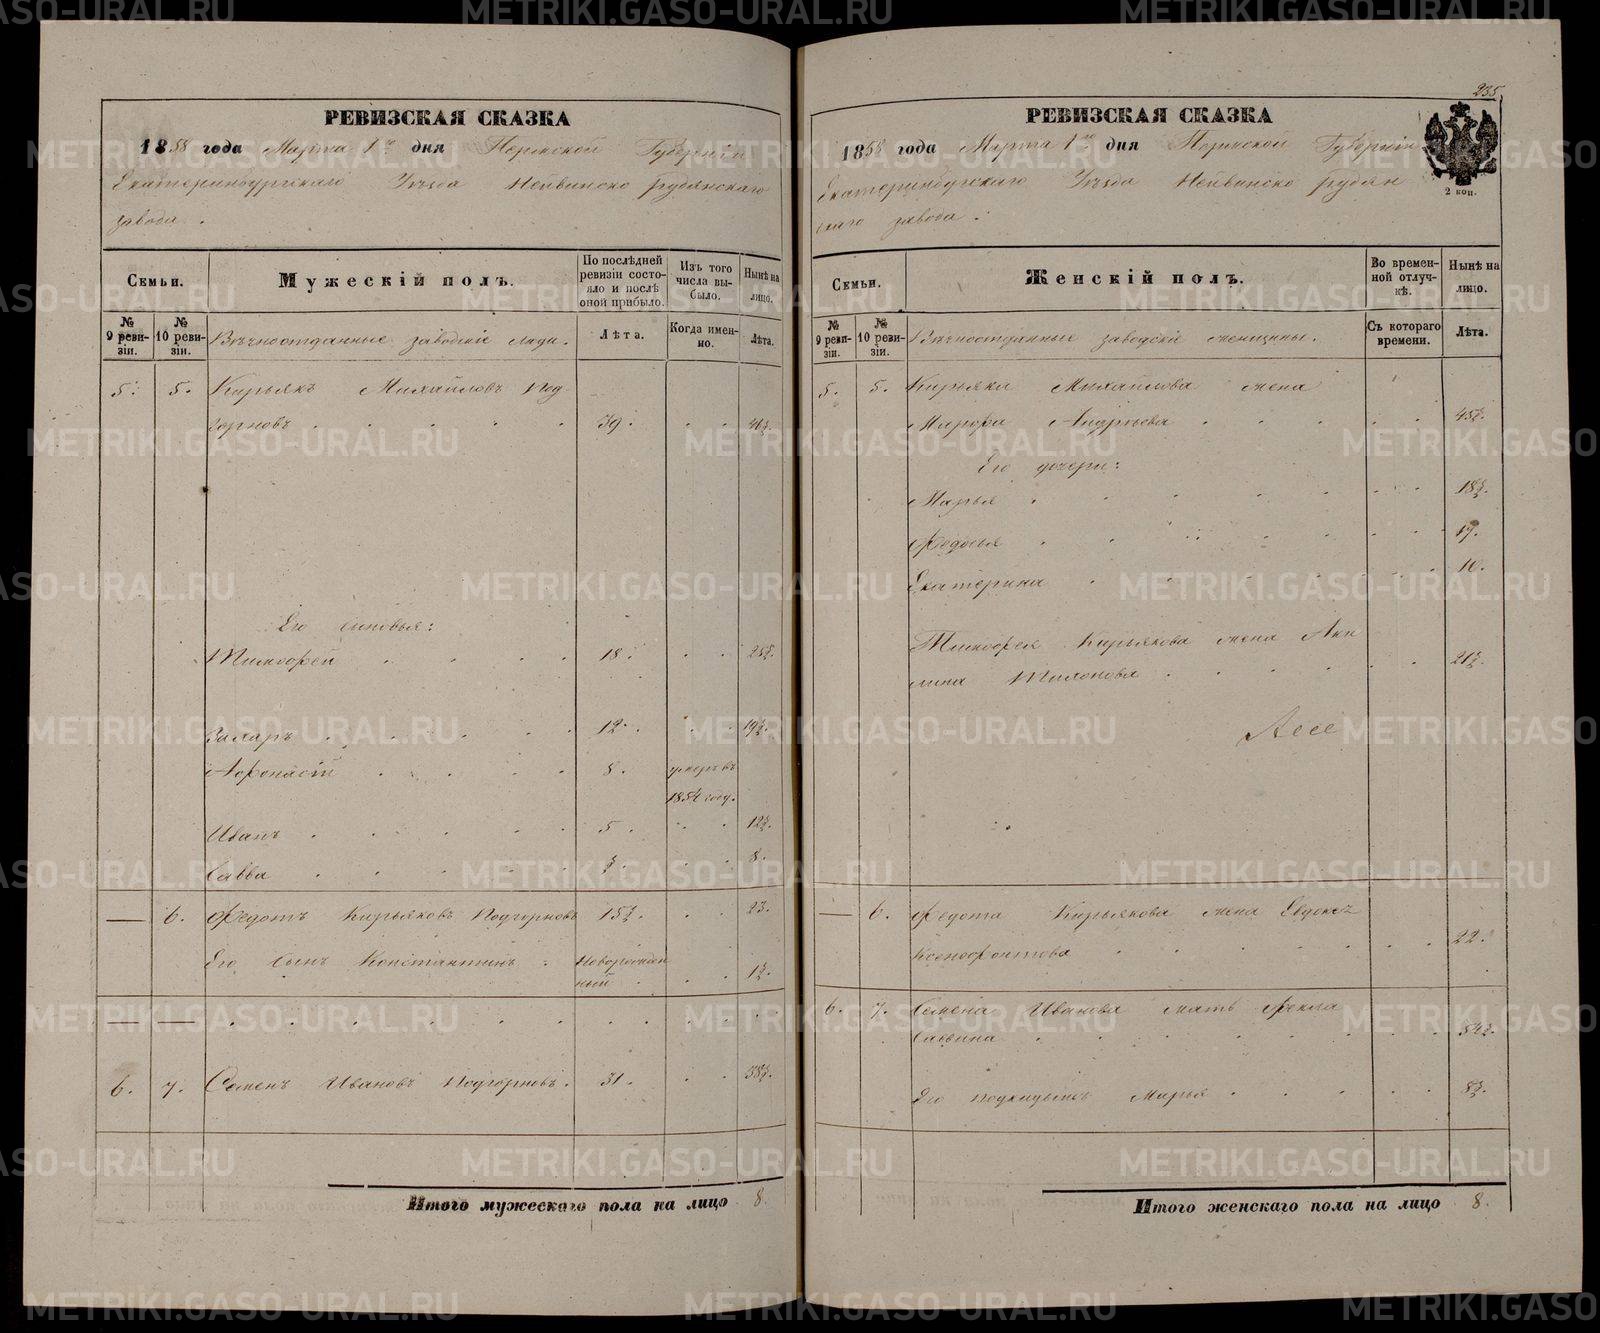 РЕВИЗСКАЯ СКАЗКА
1858 года Марта 1го дня Пермской Губерніи
Екатеринбургскаго Уѣзда Нейвинско Рудянскаго
завода.
Семьи.
Мужескій полъ.
По послѣдней ревизіи состояло и послѣ оной прибыло.
Изъ того числа выбыло.
Нынѣ на лицо.
№ 9 ревизіи.
№ 10 ревизіи.
Вѣчноотданные заводскіе люди.
Лѣта.
Когда именно.
Лѣта.
5. 5. Кирьякъ Михайловъ Под-
горновъ 39.
Его сыновья:
Тимофей 18.
Захаръ 12. 19½.
Афонасій 8. умеръ въ
1854 году.
Иванъ 5. 12½.
Савва ½. 8.
— 6. Федотъ Кирьяковъ Подгорновъ 15½. 23.
Его сынъ Константинъ новорожден
ный 1½.
6. 7. Семенъ Ивановъ Подгорновъ. 31. 38½.
Итого мужескаго пола на лицо 8.
235.
РЕВИЗСКАЯ СКАЗКА
1858 года Марта 1го дня Пермской Губерніи
Екатеринбургскаго Уѣзда Нейвинско Рудян
скаго завода.
2 коп.
Семьи.
Женскій полъ.
Во временной отлучкѣ.
Нынѣ на лицо.
№ 9 ревизіи.
№ 10 ревизіи.
Вѣчноотданные заводскіе женщины.
Съ котораго времени.
Лѣта.
5. 5. Кирьяка Михайлова жена
Марфа Андреева 45½.
Его дочери:
Марья 18½.
Федосья 17.
Екатерина 10.
Тимофея Кирьякова жена Аки
лина Тихонова 21½.
— 6. Федота Кирьякова жена
Ксенофонтова 22.
6. 7. Семена Иванова мать Фекла
Саввина 54½.
Его подкидышъ Марья 8½.
Итого женскаго пола на лицо 8.
METRIKI.GASO-URAL.RU